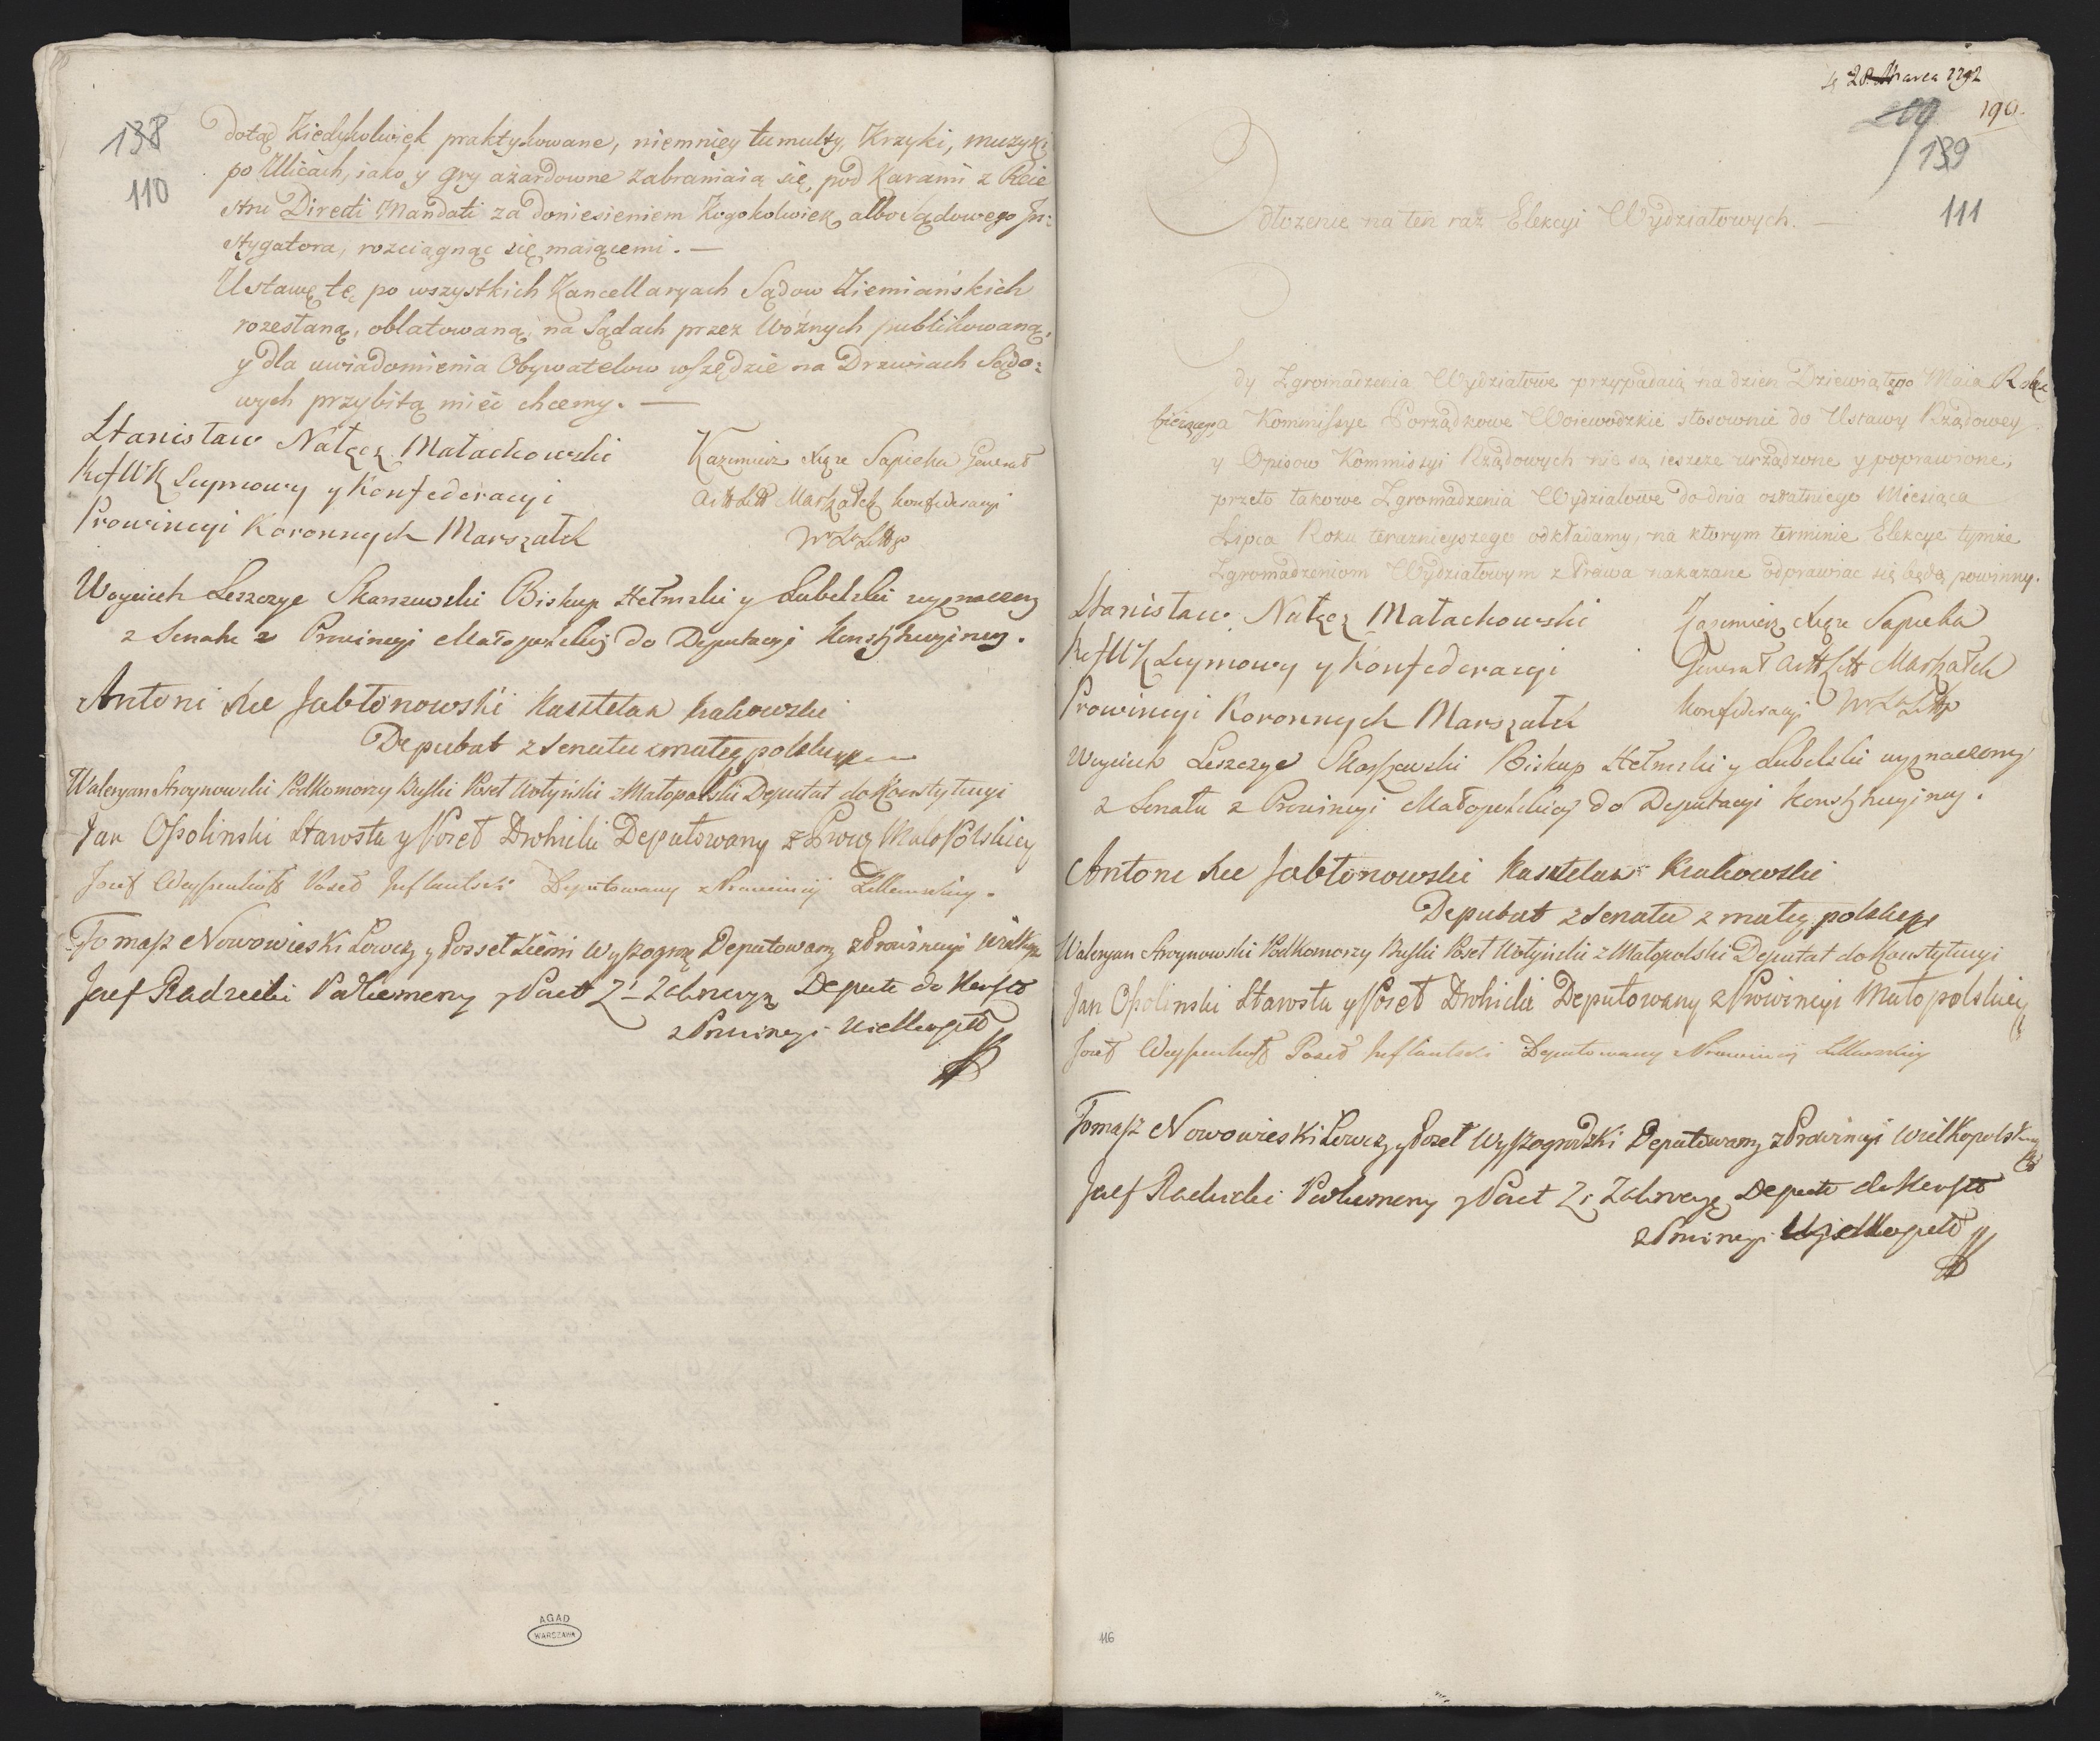 138
110
dotąd Kiedykolwiek praktykowane, niemniey tumulty, Krzyki, muzyki
po Ulicach, iako y gry azardowne zabraniaią się, pod Karami z Reie
stru Directi Mandati za doniesieniem Kogokolwiek albo Sądowego In:
stygatora, rozciągnąc się maiącemi. —
Ustawę tę po wszystkich Kancellaryach Sądow Ziemiańskich
rozesłaną, oblatowaną, na Sądach przez Woźnych publikowaną,
y dla uwiadomienia Obywatelow wszędzie na Drzwiach Sądo:
wych przybitą mieć chcemy. —
Stanisław Nałęcz Małachowski
Ref W K Seymowy y Konfederacyi
Prowincyi Koronnych Marszałek
Kazimierz Xiąże Sapieha Generał
Art Litt Marszałek Konfederacyi
W X Litt
Woyciech Leszczyc Skarszewski Biskup Chełmski y Lubelski wyznaczony
z Senatu z Prowincyi Małopolskiey do Deputacyi Konstytucyiney.
Antoni Xże Jabłonowski Kasztelan Krakowski
Deputat z Senatu z małey polski
Waleryan Stroynowski Podkomorzy Buski Poseł Wołyński z Małopolski Deputat do Konstytucyi
Jan Ossolinski Starosta y Poseł Drohicki Deputowany z Prowcy Małopolskiey
Jozef Weyssenhoff Poseł Inflantski Deputowany z Prowincij Littewskiey.
Tomasz Nowowieski Łowczy y Posseł Ziemi Wyszogrę Deputowany z Prowincyi Wielkop
Jozef Radzicki Podkomorzy y Poseł Zi Zakroczy Deput do Konst
z Prowincyi Wielkopol
AGAD
WARSZAWA
4 28 Marca 1792
209 190.
139
111
Odłożenie na ten raz Elekcyi Wydziałowych. —
Gdy Zgromadzenia Wydziałowe przypadaią na dzien Dziewiątego Maia Roku
bieżącego a Kommissye Porządkowe Woiewodzkie stosownie do Ustawy Rządowey
y Opisow Kommissyi Rządowych nie są ieszcze urządzone y poprawione,
przeto takowe Zgromadzenia Wydziałowe do dnia ostatniego Miesiąca
Lipca Roku teraznieyszego odkładamy, na ktorym terminie Elekcye tymże
Zgromadzeniom Wydziałowym z Prawa nakazane odprawiac się będą powinny.
Stanisław Nałęcz Małachowski
Ref W K Seymowy y Konfederacyi
Prowincyi Koronnych Marszałek
Kazimierz Xiąże Sapieha
Generał Art Litt Marszałek
Konfederacyi W X Litt
Woyciech Leszczyc Skarszewski Biskup Chełmski y Lubelski wyznaczony
z Senatu z Prowincyi Małopolskiey do Deputacyi Konstytucyiney.
Antoni Xże Jabłonowski Kasztelan Krakowski
Deputat z Senatu z małey polski
Waleryan Stroynowski Podkomorzy Buski Poseł Wołyński z Małopolski Deputat do Konstytucyi
Jan Ossolinski Starosta y Poseł Drohicki Deputowany z Prowincyi Małopolskiey
Jozef Weyssenhoff Poseł Inflantski Deputowany z Prowincij Littewskiey
Tomasz Nowowieski Łowczy y Poseł Wyszogrodzki Deputowany z Prowincyi Wielkopolskiey
Jozef Radzicki Podkomorzy y Poseł Zi Zakroczy Deput do Konst
z Prowincyi Wielkopol
116